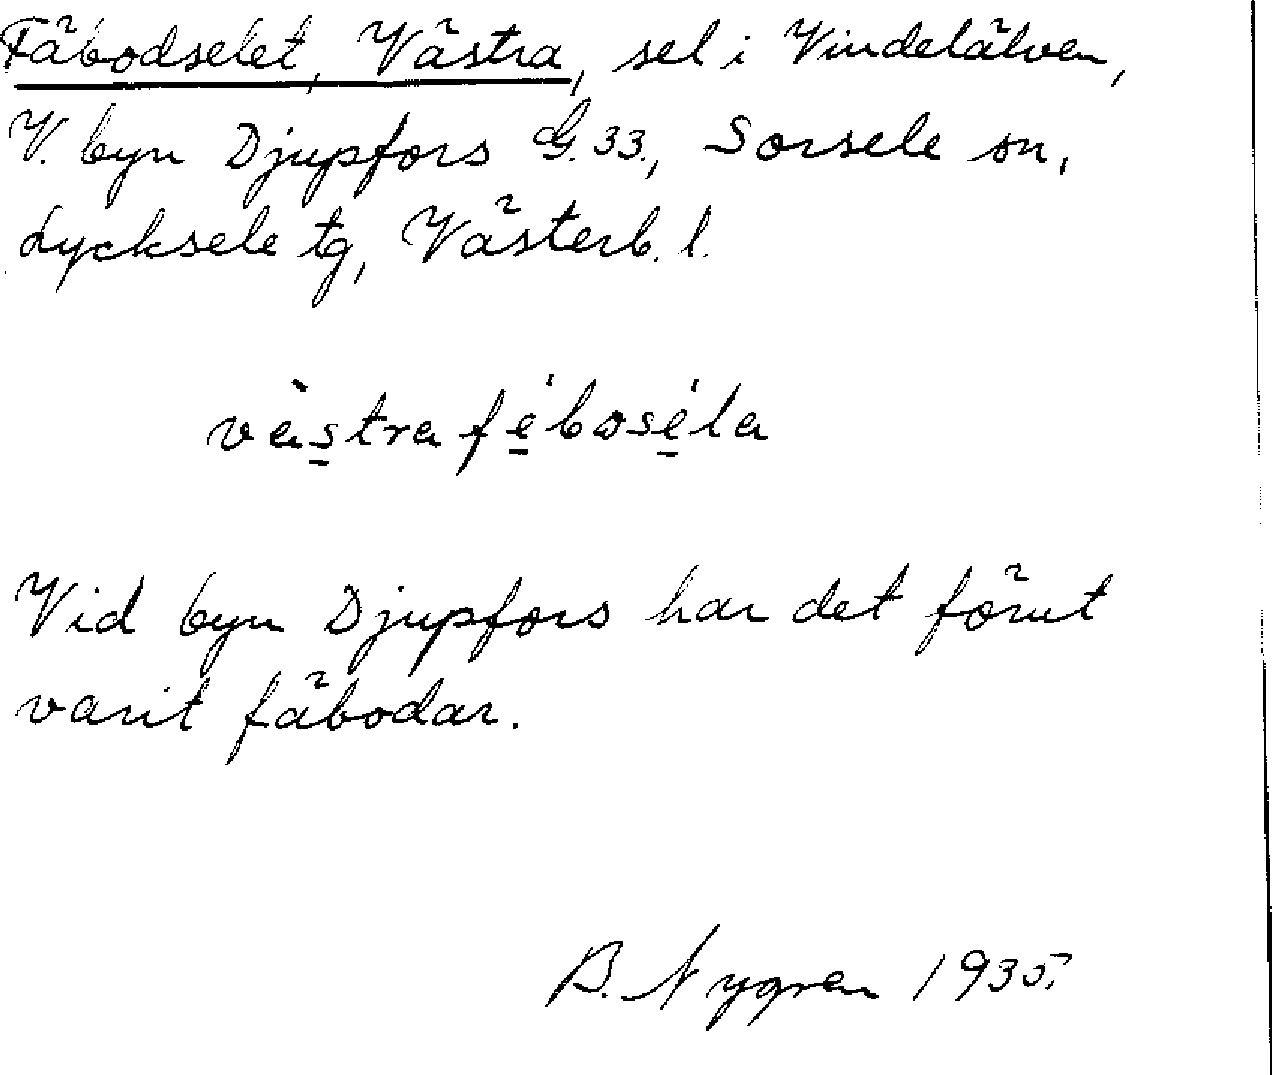 Fäbodselet, Västra, sel i Vindelälven,
V. byn Djupfors G. 33., Sorsele sn,
Lycksele tg, Västerb. l.
västra féboséla
Vid byn Djupfors har det förut
varit fäbodar.
B. Nygren 1935.